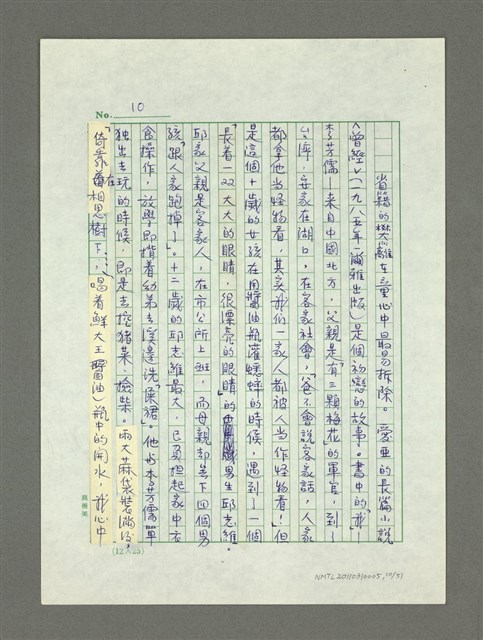 No. 10
省籍的樊離在童心中最易拆除。愛亞的長篇小說
〈曾經〉(一九八五年一爾雅出版)是個初戀的故事。書中的「我」
李芳儒—來自中國北方,父親是「有三顆梅花的軍官,到
台灣,安家在湖口,在客家社會,「爸不會說客家話,人家
都拿他當怪物看,其實我們一家人都被人當作怪物看!」但
是這個十歲的女孩在用醬油瓶灌蟋蟀的時候,遇到了一個
「長着一22大大的眼睛,很漂亮的眼睛」的男生邱志維。
邱家父親是客家人,在市公所上班,而母親卻丟下四個男
孩「跟人家跑掉了」。十二歲的邱志維最大,已負担起家中衣
食操作,放學即揹着幼弟去溪邊洗「屎裙」。他與李芳儒單
獨出去玩的時候,即是去挖猪菜、撿柴。兩大麻袋裝滿後,
「倚靠着在相思樹下,……喝着鮮大王(醬油)瓶中的開水,我心中
(12×25)
NMTL20110010005,10/51